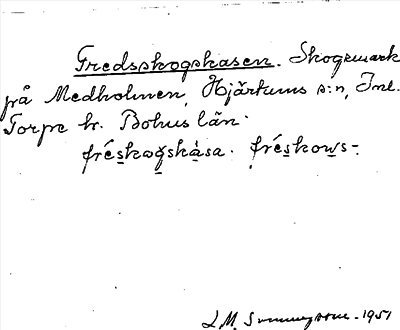 Fredsskogskasen. Skogsmark
på Medholmen, Hjärtums s:n, Inl.
Torpe hr. Bohus län.
fréskogskåsa. fréskows-.
1951